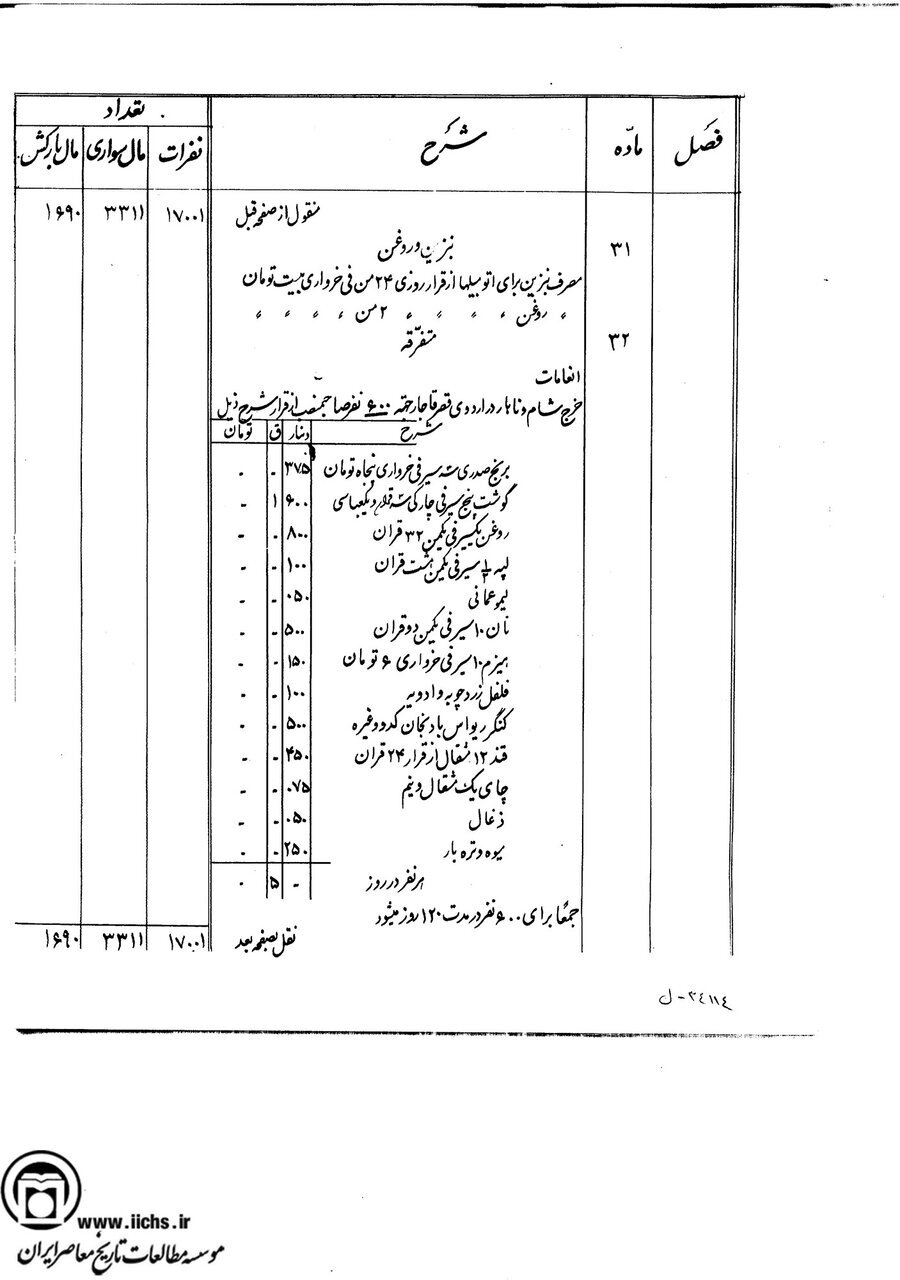 فصل ماده شرح تعداد
نفرات مال سواری مال بارکش
منقول از صفحه قبل ۱۷۰۰۱ ۳۳۱۱ ۱۶۹۰
۳۱ بنزین و روغن
مصرف بنزین برای اتومبیلها از قرار روزی ۲۴ من فی خرواری بیست تومان
〃 روغن 〃 〃 〃 〃 ۲ من 〃 〃 〃 〃
۳۲ متفرقه
انعامات
خرج شام و ناهار در اردوی قصر قاجار جهة ۶۰۰ نفر صاحبمنصب از قرار شرح ذیل
شرح دینار ق تومان
برنج صدری سه سیر فی خرواری پنجاه تومان ۳۷۵ - -
گوشت پنج سیر فی چارکی سه قران و یکعباسی ۶۰۰ ۱ -
روغن یکسیر فی یکمن ۳۲ قران ۸۰۰ - -
لپه سیر فی یکمن هشت قران ۱۰۰ - -
لیمو عمانی ۰۵۰ - -
نان ۱۰ سیر فی یکمن دو قران ۵۰۰ - -
هیزم ۱۰ سیر فی خرواری ۶ تومان ۱۵۰ - -
فلفل زردچوبه و ادویه ۱۰۰ - -
کنگر ریواس بادنجان کدو وغیره ۵۰۰ - -
قند ۱۲ مثقال از قرار ۲۴ قران ۴۵۰ - -
چای یک مثقال و نیم ۰۷۵ - -
ذغال ۰۵۰ - -
میوه و تره بار ۲۵۰ - -
هر نفر در روز - ۵ -
جمعاً برای ۶۰۰ نفر در مدت ۱۲۰ روز میشود
نقل بصفحه بعد ۱۷۰۰۱ ۳۳۱۱ ۱۶۹۰
۳٤۱۱٤-ل
www.iichs.ir
موسسه مطالعات تاریخ معاصر ایران